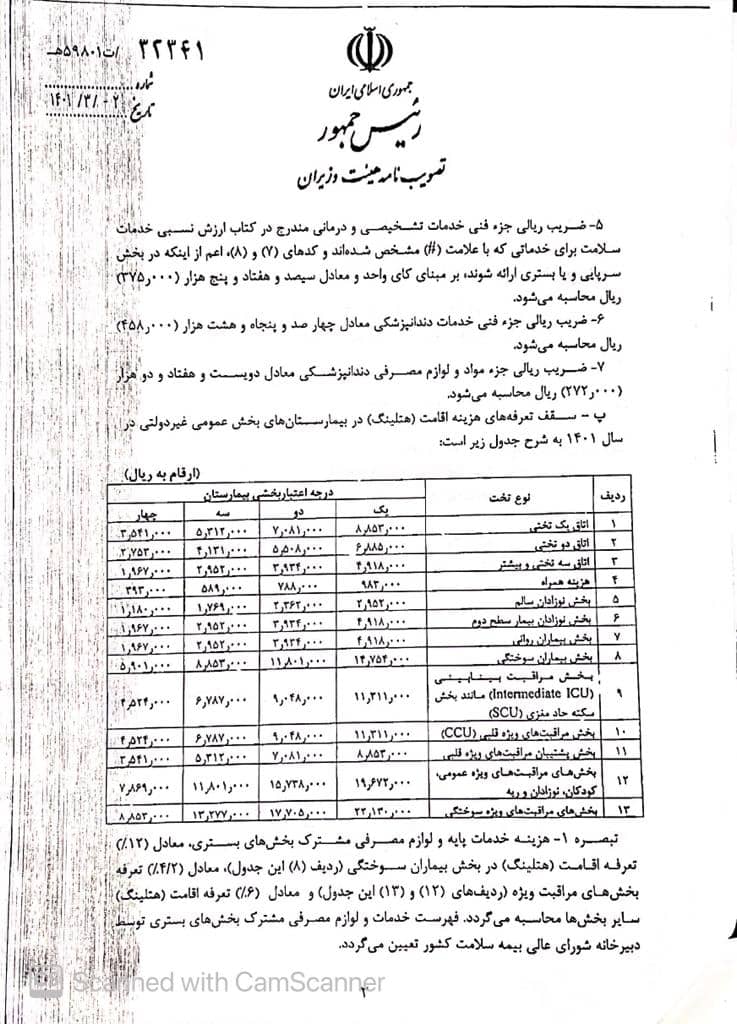 ۳۲۳۴۱ /ت۵۹۸۰۱هـ
شماره
۱۴۰۱/۳/۰۲
تاریخ
جمهوری اسلامی ایران
رئیس جمهور
تصویب نامه هیئت وزیران
۵- ضریب ریالی جزء فنی خدمات تشخیصی و درمانی مندرج در کتاب ارزش نسبی خدمات
سلامت برای خدماتی که با علامت (#) مشخص شده‌اند و کدهای (۷) و (۸)، اعم از اینکه در بخش
سرپایی و یا بستری ارائه شوند، بر مبنای کای واحد و معادل سیصد و هفتاد و پنج هزار (۳۷۵٫۰۰۰)
ریال محاسبه می‌شود.
۶- ضریب ریالی جزء فنی خدمات دندانپزشکی معادل چهار صد و پنجاه و هشت هزار (۴۵۸٫۰۰۰)
ریال محاسبه می‌شود.
۷- ضریب ریالی جزء مواد و لوازم مصرفی دندانپزشکی معادل دویست و هفتاد و دو هزار
(۲۷۲٫۰۰۰) ریال محاسبه می‌شود.
پ – سقف تعرفه‌های هزینه اقامت (هتلینگ) در بیمارستان‌های بخش عمومی غیردولتی در
سال ۱۴۰۱ به شرح جدول زیر است:
(ارقام به ریال)
ردیف نوع تخت درجه اعتباربخشی بیمارستان
یک دو سه چهار
۱ اتاق یک تختی ۸٫۸۵۳٫۰۰۰ ۷٫۰۸۱٫۰۰۰ ۵٫۳۱۲٫۰۰۰ ۳٫۵۴۱٫۰۰۰
۲ اتاق دو تختی ۶٫۸۸۵٫۰۰۰ ۵٫۵۰۸٫۰۰۰ ۴٫۱۳۱٫۰۰۰ ۲٫۷۵۳٫۰۰۰
۳ اتاق سه تختی و بیشتر ۴٫۹۱۸٫۰۰۰ ۳٫۹۳۴٫۰۰۰ ۲٫۹۵۲٫۰۰۰ ۱٫۹۶۷٫۰۰۰
۴ هزینه همراه ۹۸۳٫۰۰۰ ۷۸۸٫۰۰۰ ۵۸۹٫۰۰۰ ۳۹۳٫۰۰۰
۵ بخش نوزادان سالم ۲٫۹۵۲٫۰۰۰ ۲٫۳۶۲٫۰۰۰ ۱٫۷۶۹٫۰۰۰ ۱٫۱۸۰٫۰۰۰
۶ بخش نوزادان بیمار سطح دوم ۴٫۹۱۸٫۰۰۰ ۳٫۹۳۴٫۰۰۰ ۲٫۹۵۲٫۰۰۰ ۱٫۹۶۷٫۰۰۰
۷ بخش بیماران روانی ۴٫۹۱۸٫۰۰۰ ۳٫۹۳۴٫۰۰۰ ۲٫۹۵۲٫۰۰۰ ۱٫۹۶۷٫۰۰۰
۸ بخش بیماران سوختگی ۱۴٫۷۵۴٫۰۰۰ ۱۱٫۸۰۱٫۰۰۰ ۸٫۸۵۳٫۰۰۰ ۵٫۹۰۱٫۰۰۰
بخش مراقبت بینابینی
۹ (Intermediate ICU) مانند بخش ۱۱٫۳۱۱٫۰۰۰ ۹٫۰۴۸٫۰۰۰ ۶٫۷۸۷٫۰۰۰ ۴٫۵۲۴٫۰۰۰
سکته حاد مغزی (SCU)
۱۰ بخش مراقبت‌های ویژه قلبی (CCU) ۱۱٫۳۱۱٫۰۰۰ ۹٫۰۴۸٫۰۰۰ ۶٫۷۸۷٫۰۰۰ ۴٫۵۲۴٫۰۰۰
۱۱ بخش پشتیبان مراقبت‌های ویژه قلبی ۸٫۸۵۳٫۰۰۰ ۷٫۰۸۱٫۰۰۰ ۵٫۳۱۲٫۰۰۰ ۳٫۵۴۱٫۰۰۰
۱۲ بخش‌های مراقبت‌های ویژه عمومی، ۱۹٫۶۷۲٫۰۰۰ ۱۵٫۷۳۸٫۰۰۰ ۱۱٫۸۰۱٫۰۰۰ ۷٫۸۶۹٫۰۰۰
کودکان، نوزادان و ریه
۱۳ بخش‌های مراقبت‌های ویژه سوختگی ۲۲٫۱۳۰٫۰۰۰ ۱۷٫۷۰۵٫۰۰۰ ۱۳٫۲۷۷٫۰۰۰ ۸٫۸۵۳٫۰۰۰
تبصره ۱- هزینه خدمات پایه و لوازم مصرفی مشترک بخش‌های بستری، معادل (۱۲٪)
تعرفه اقامت (هتلینگ) در بخش بیماران سوختگی (ردیف (۸) این جدول)، معادل (۴/۲٪) تعرفه
بخش‌های مراقبت ویژه (ردیف‌های (۱۲) و (۱۳) این جدول) و معادل (۶٪) تعرفه اقامت (هتلینگ)
سایر بخش‌ها محاسبه می‌گردد. فهرست خدمات و لوازم مصرفی مشترک بخش‌های بستری توسط
دبیرخانه شورای عالی بیمه سلامت کشور تعیین می‌گردد.
CS Scanned with CamScanner
۲